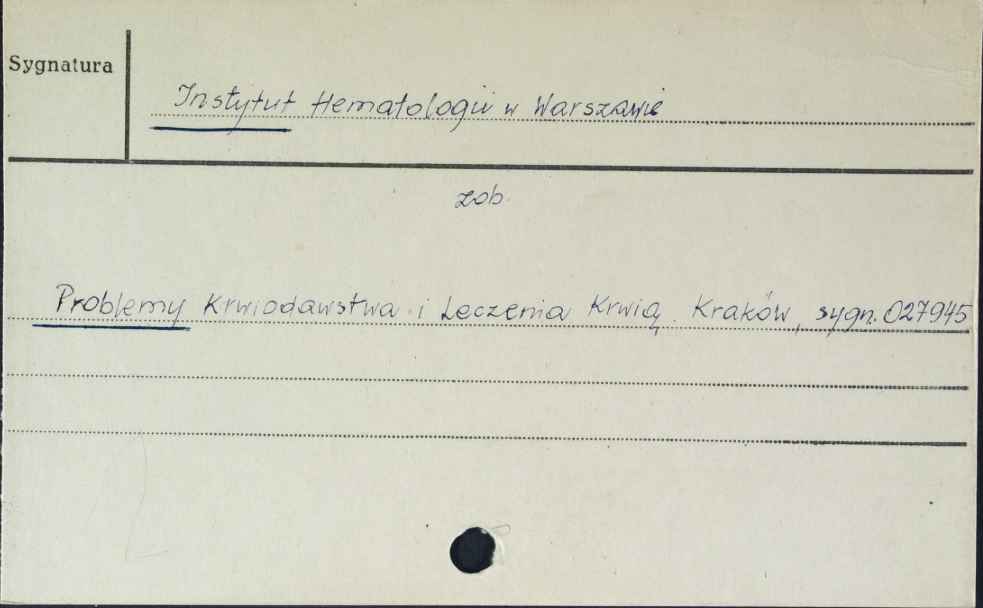 Sygnatura
Instytut Hematologii w Warszawie
zob.
Problemy Krwiodawstwa i Leczenia Krwią. Kraków, sygn. 027945